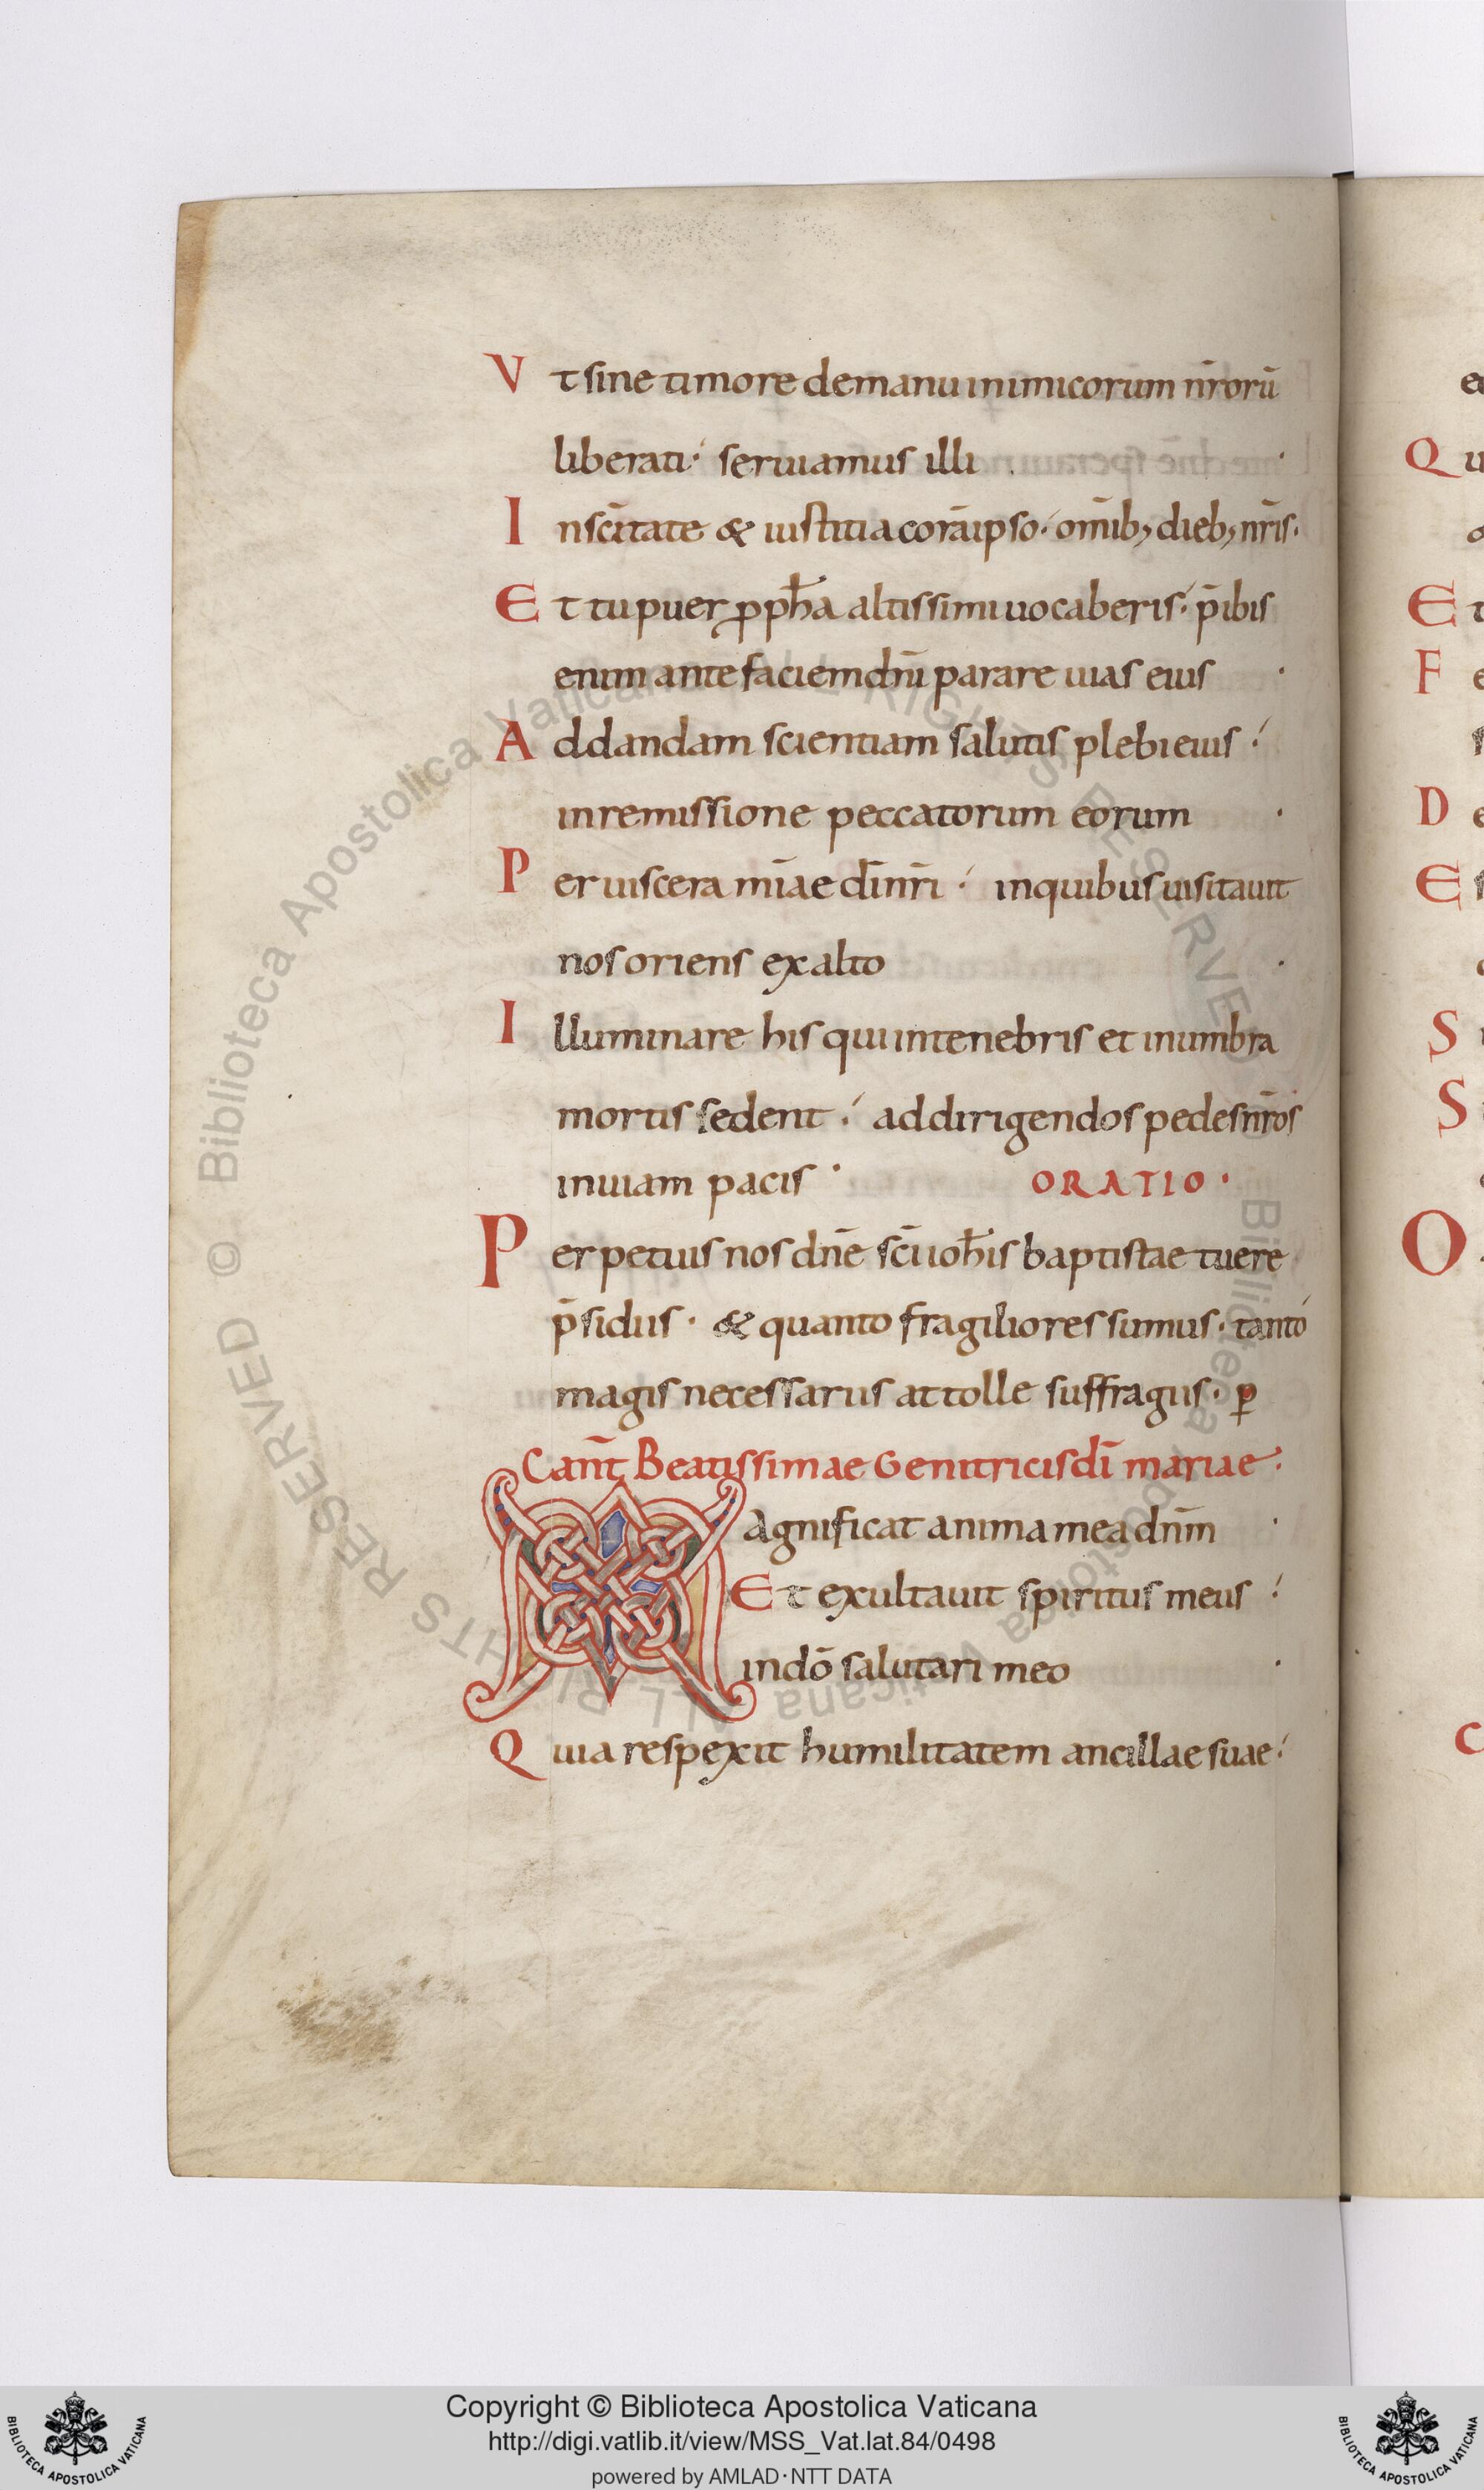 Vt sine timore demanu inimicorum nr̄orū
liberati· seruiamus illi ·
Inscītate & iustitia corāipso· om̄ib; dieb; nr̄is·
Et tu puer ꝓpħa altissimi uocaberis· p̄ibis
enim ante faciem dn̄i parare uias eius ·
Addandam scientiam salutis plebi eius·
inremissione peccatorum eorum ·
Per uiscera mīae dī nr̄i· inquibus uisitauit
nos oriens exalto ·
Illuminare his qui intenebris et inumbra
mortis sedent· addirigendos pedes nr̄os
inuiam pacis · ORATIO·
Perpetuis nos dn̄e sc̄i ioħis baptistae tuere
p̄sidiis· & quanto fragiliores sumus· tanto
magis necessariis attolle suffragiis· ꝑ
Cant̄ Beatissimae Genitricis dī mariae·
Magnificat anima mea dn̄m ·
Et exultauit spiritus meus·
indō salutari meo ·
Quia respexit humilitatem ancillae suae·
e
Qu
Et
F e
D e
E s
S
S
O
C
Biblioteca Apostolica Vaticana ALL RIGHTS RESERVED © Biblioteca Apostolica Vaticana ALL RIGHTS RESERVED ©
Copyright © Biblioteca Apostolica Vaticana
http://digi.vatlib.it/view/MSS_Vat.lat.84/0498
powered by AMLAD·NTT DATA
BIBLIOTECA APOSTOLICA VATICANA
BIBLIOTECA APOSTOLICA VATICANA